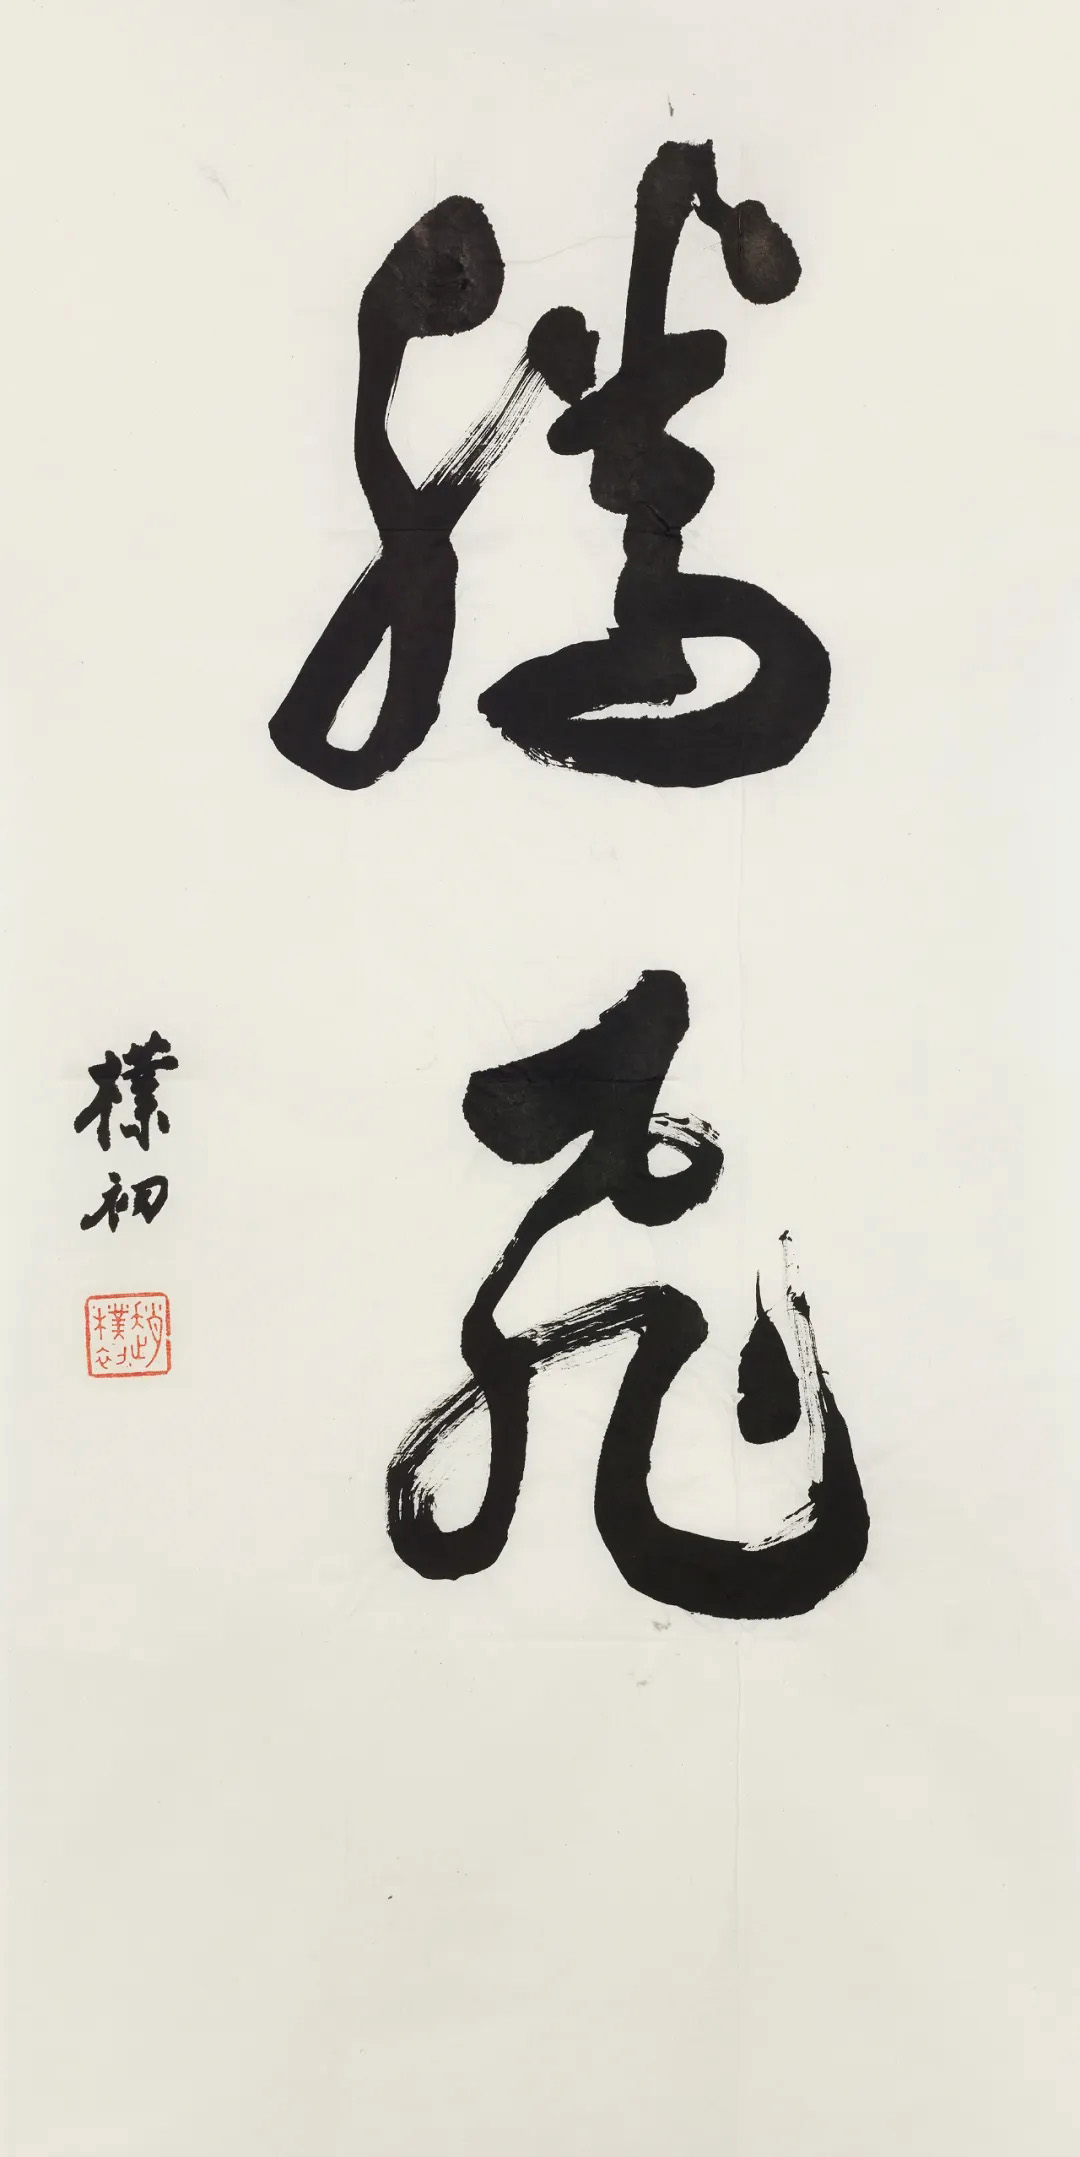 腾飞
樸初
趙樸初